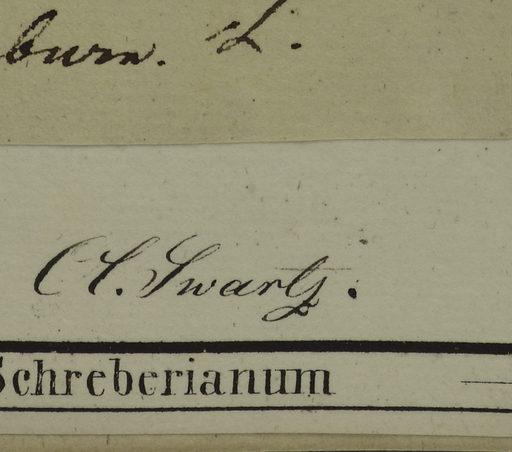 burn. L.
Cl. Swartz.
Schreberianum